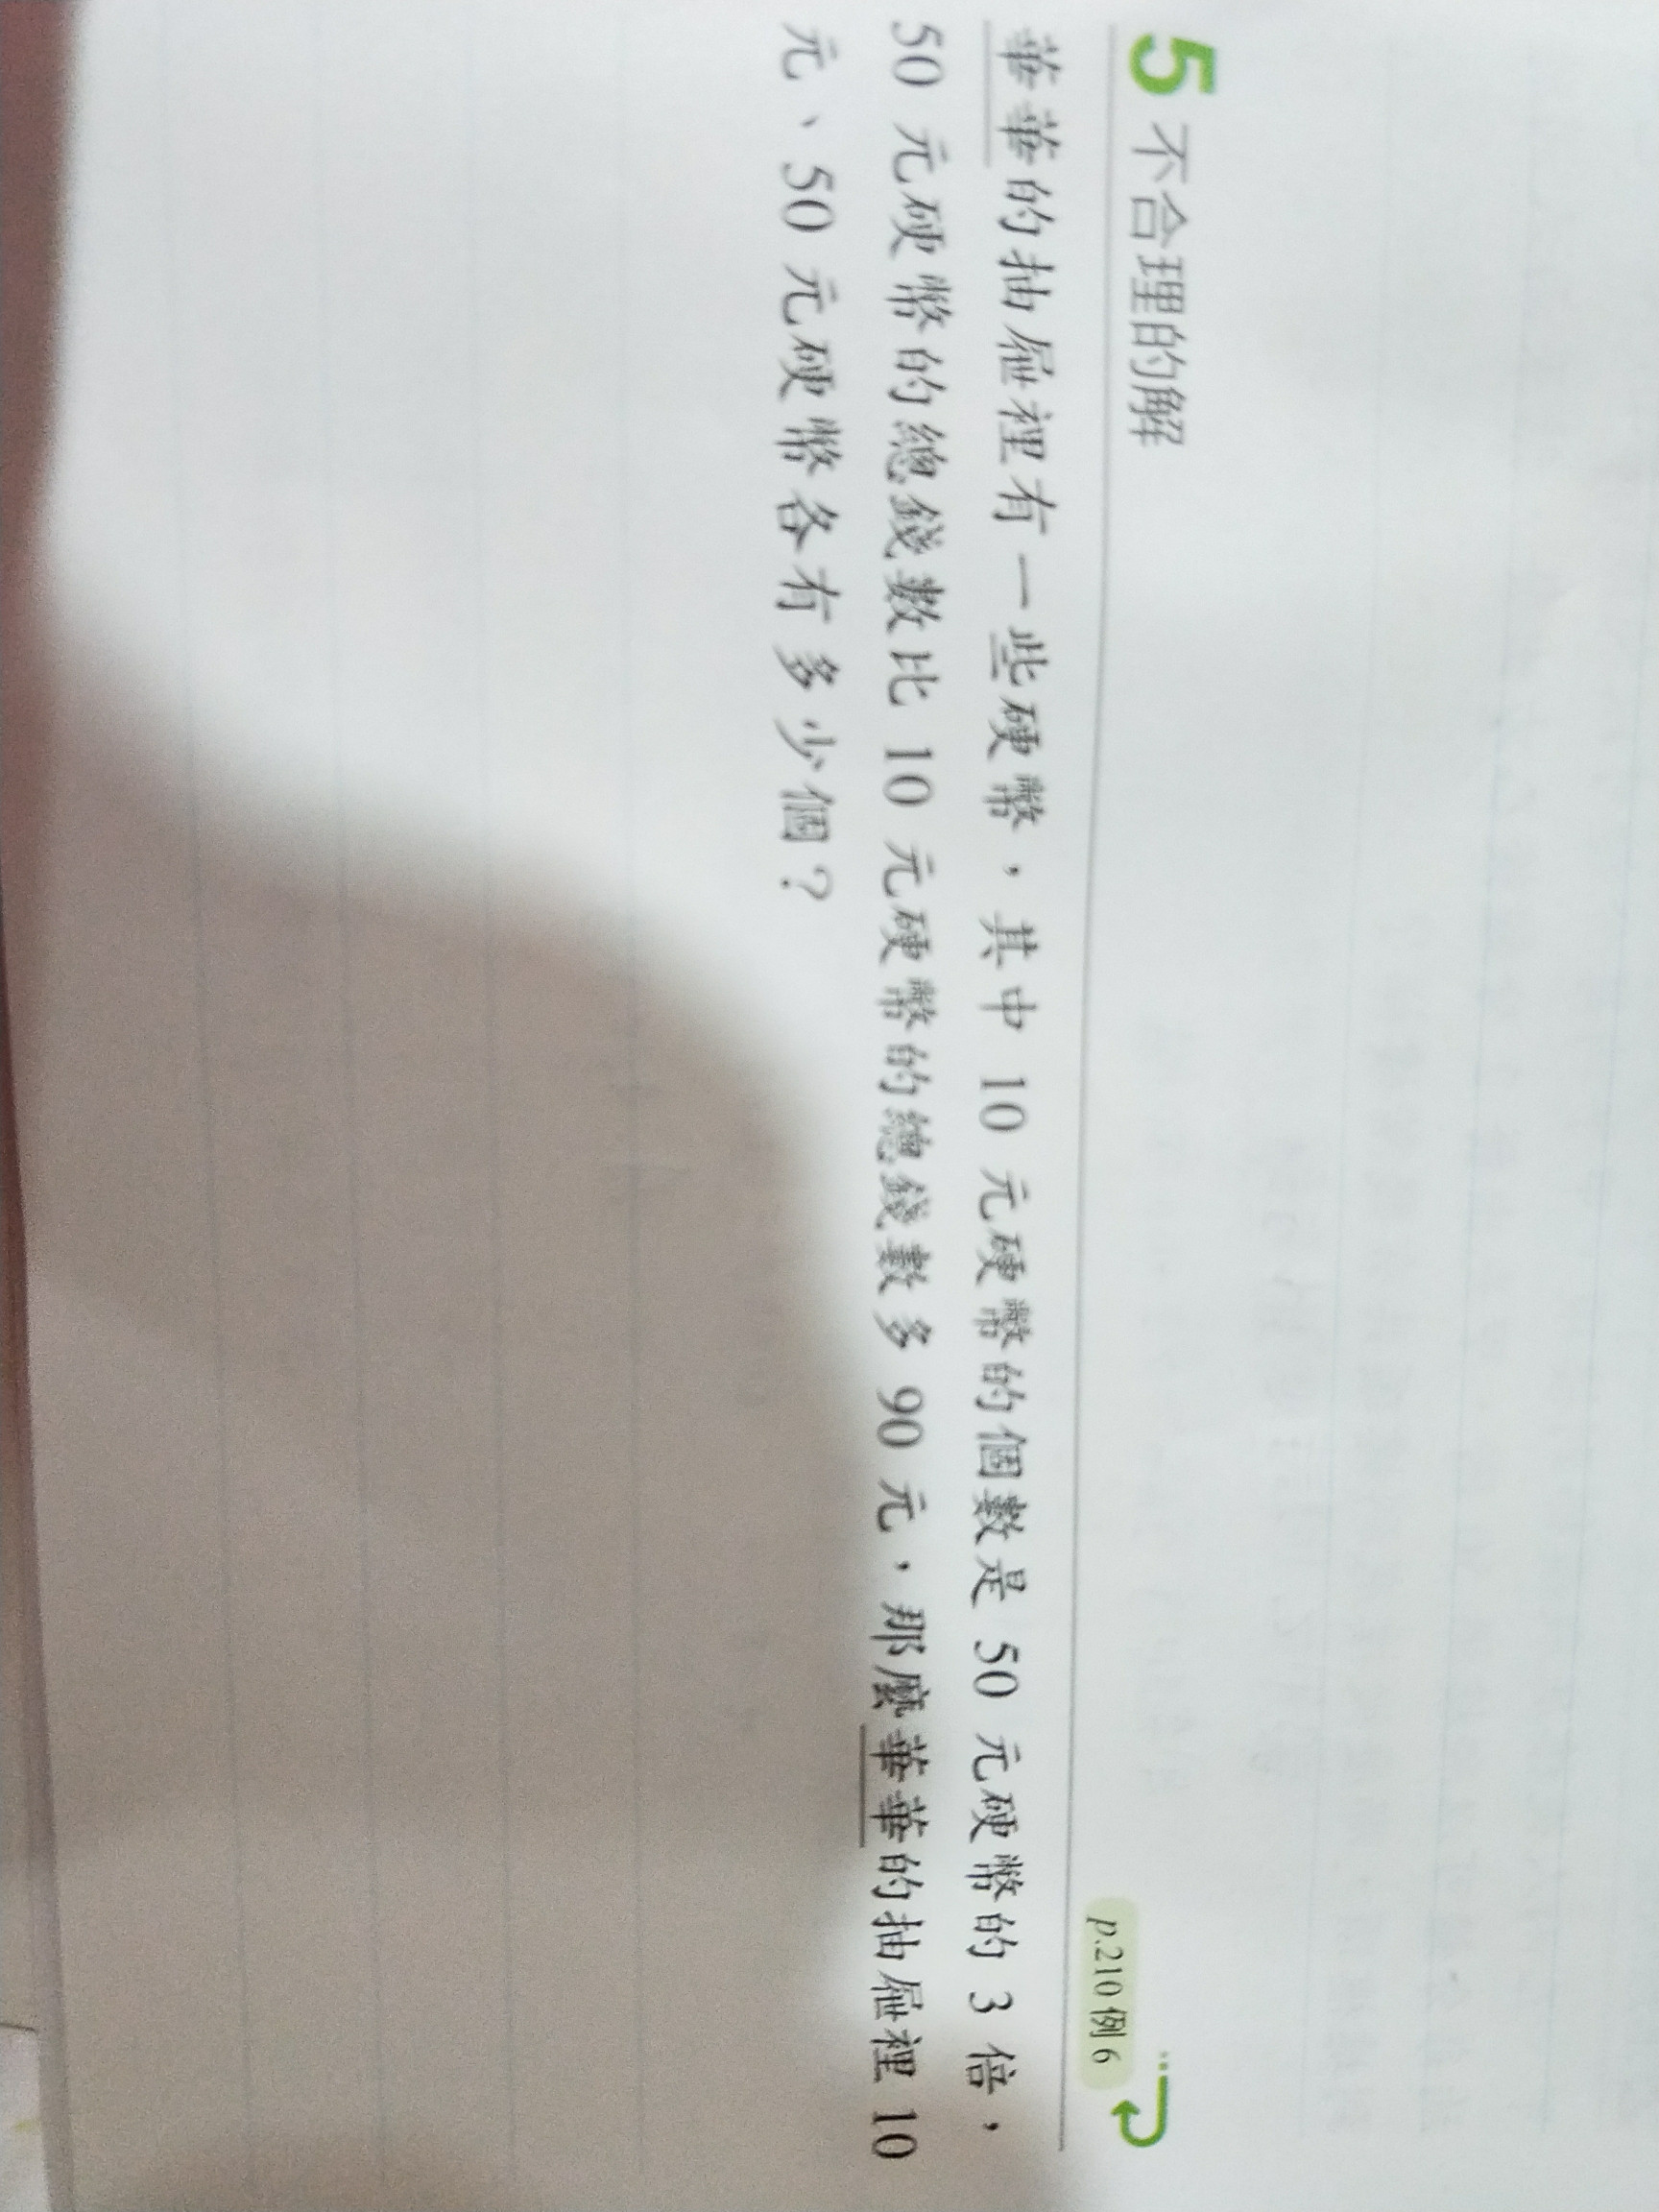 5 不合理的解
p.210 例 6
華華的抽屜裡有一些硬幣，其中 10 元硬幣的個數是 50 元硬幣的 3 倍，
50 元硬幣的總錢數比 10 元硬幣的總錢數多 90 元，那麼華華的抽屜裡 10
元、50 元硬幣各有多少個？